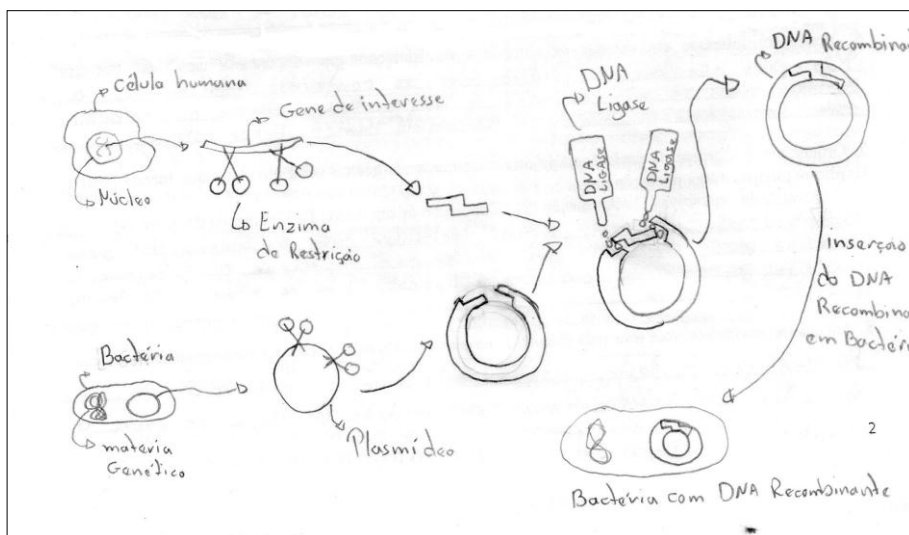 Célula humana
Gene de interesse
Núcleo
Enzima
de Restrição
DNA
Ligase
DNA
LIGASE
DNA
LIGASE
DNA Recombina
Inserção
do DNA
Recombina
em Bactéri
Bactéria
materia
Genético
Plasmídeo
2
Bactéria com DNA Recombinante